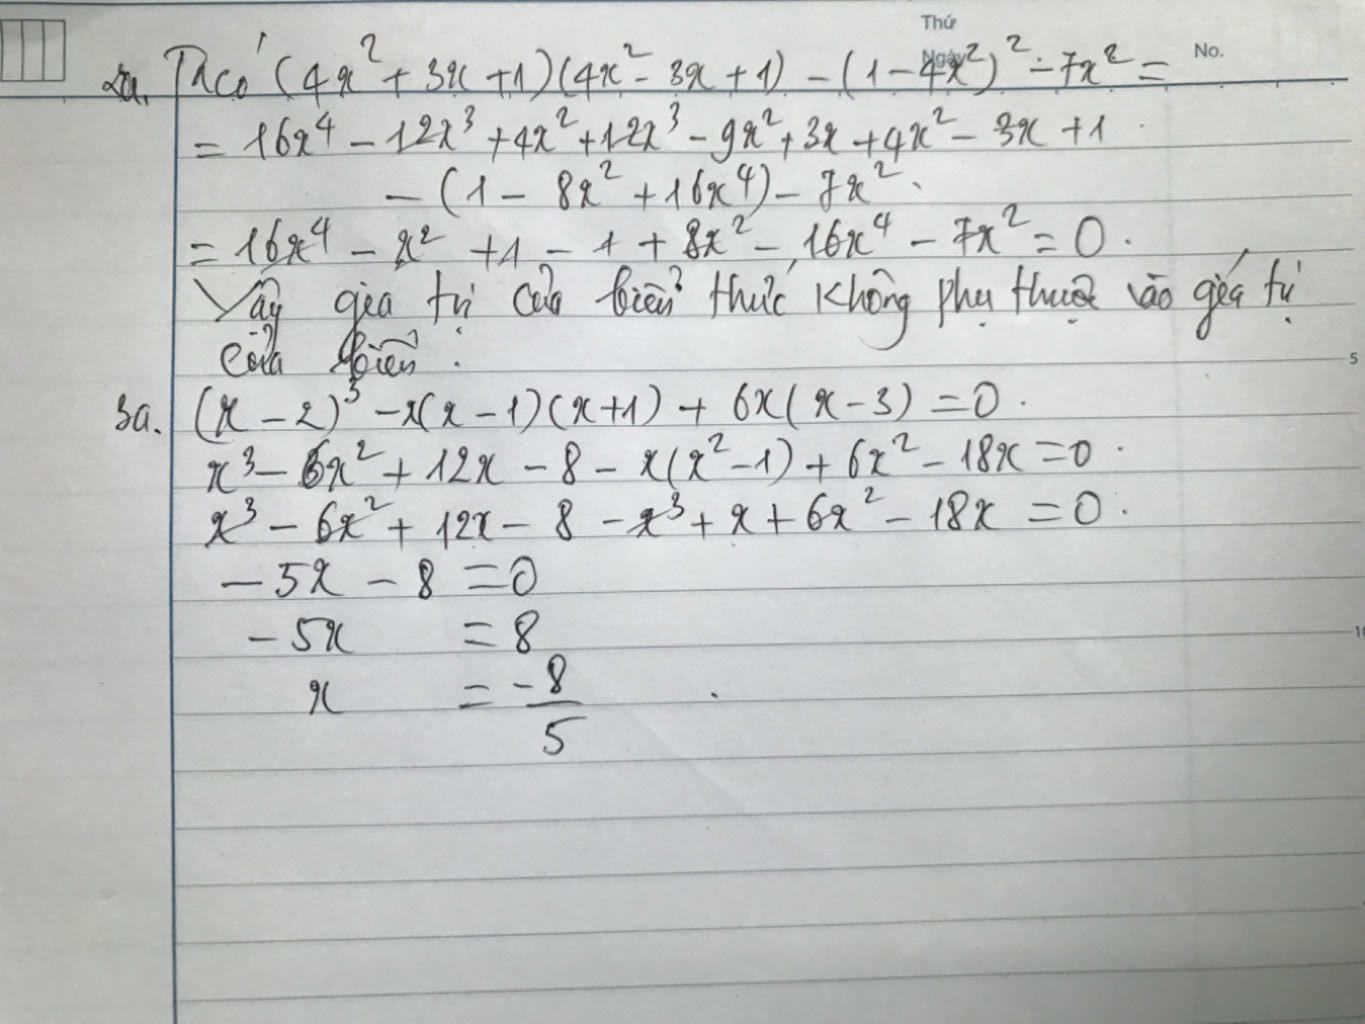 Thứ
Ngày No.
2a. Ta có (4x² + 3x + 1)(4x² - 3x + 1) - (1 - 4x²)² - 7x² =
= 16x⁴ - 12x³ + 4x² + 12x³ - 9x² + 3x + 4x² - 3x + 1
- (1 - 8x² + 16x⁴) - 7x².
= 16x⁴ - x² + 1 - 1 + 8x² - 16x⁴ - 7x² = 0.
Vậy giá trị của biểu thức không phụ thuộc vào giá trị
của biến.
5
3a. (x - 2)³ - x(x - 1)(x + 1) + 6x(x - 3) = 0.
x³ - 6x² + 12x - 8 - x(x² - 1) + 6x² - 18x = 0.
x³ - 6x² + 12x - 8 - x³ + x + 6x² - 18x = 0.
- 5x - 8 = 0
- 5x = 8
10
x = -8/5